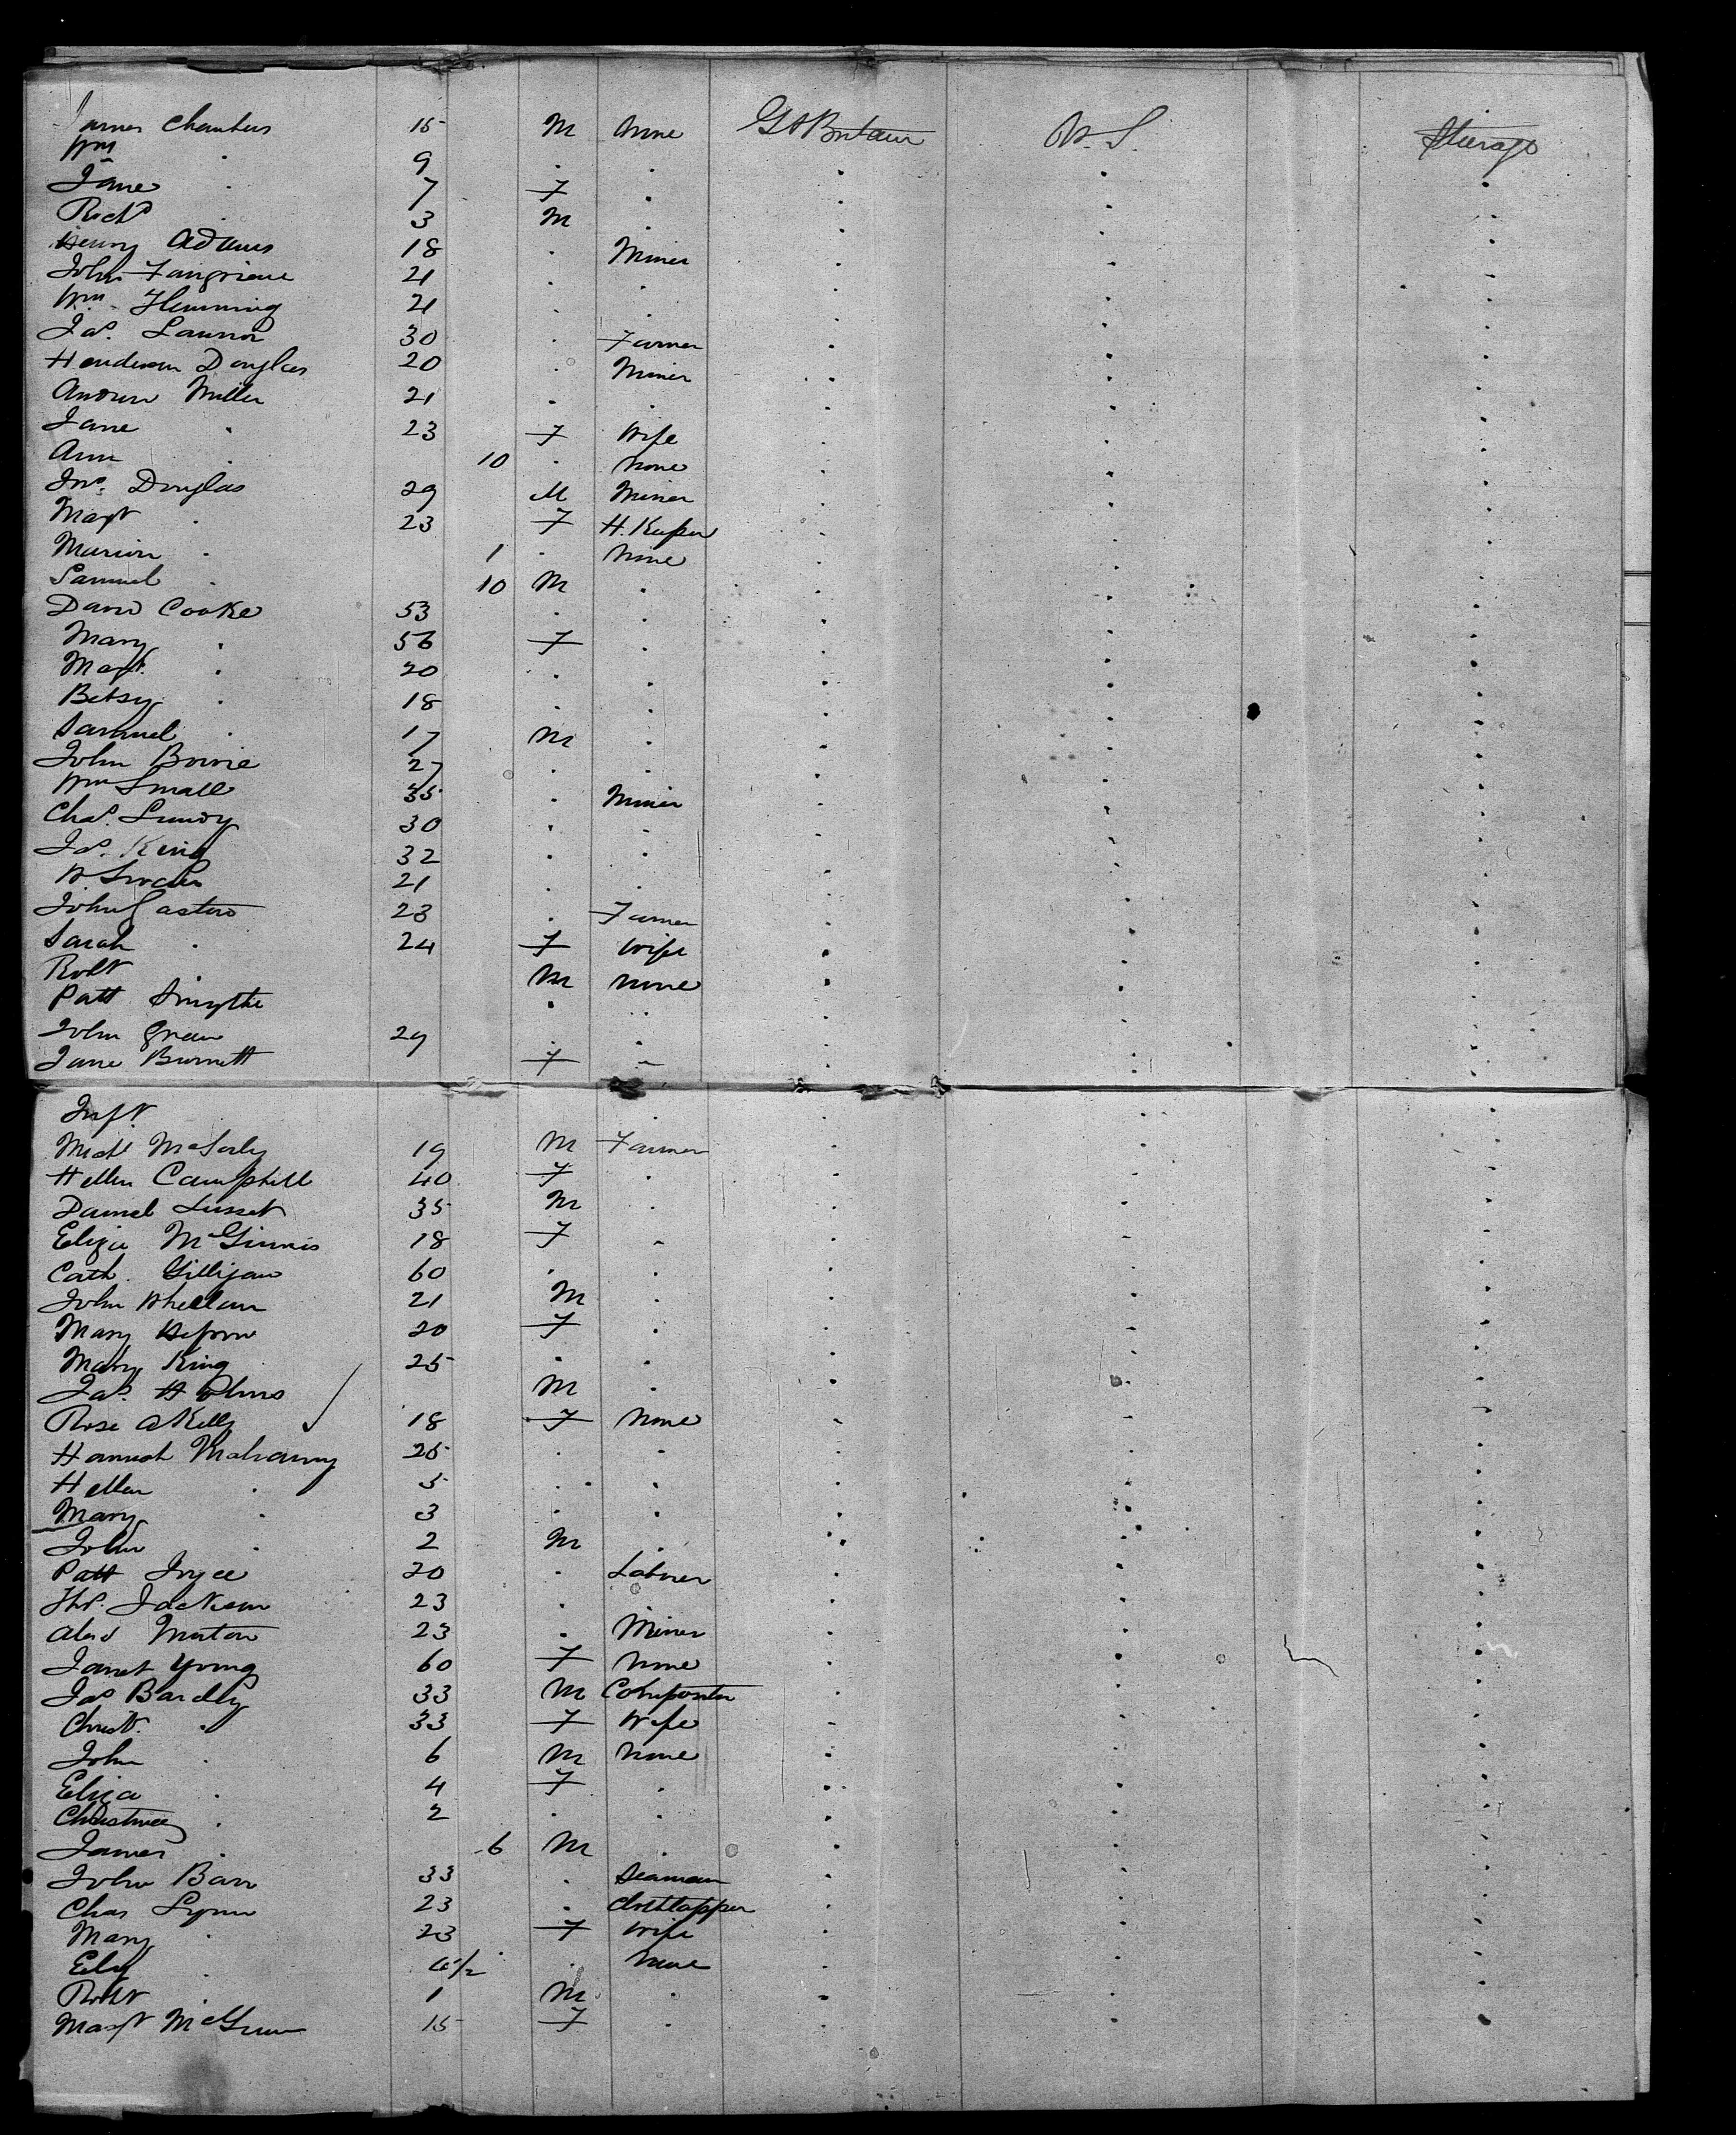 James Chambers 15 M None Gt Britain U.S. Steerage
Wm . 9 . . . . .
Jane . 7 F . . . .
Richd . 3 M . . . .
Henry Adams 18 . Miner . . .
John Fairgrieve 21 . . . . .
Wm Flemming 21 . . . . .
Jas. 30 . Farmer . . .
Henderson Douglas 20 . Miner . . .
Andrew Miller 21 . . . . .
Jane . 23 F Wife . . .
Ann . 10 . None . . .
Jno. Douglas 29 M Miner . . .
Magt . 23 F H. Keeper . . .
Marion . 1 . None . . .
Samuel . 10 M . . . .
David Cooke 53 . . . . .
Mary . 56 F . . . .
Magt. . 20 . . . . .
Betsy . 18 . . . . .
Samuel . 17 M . . . .
John Bowie 27 . . . . .
Wm Small 35 . Miner . . .
Chas. Lundy 30 . . . . .
Jas. King 32 . . . . .
21 . . . . .
John 23 . Farmer . . .
Sarah . 24 F Wife . . .
Robt . M None . . .
Patt Smythe . . . . .
John Green 29 . . . . .
Jane Burnett F . . . .
Inft. . . . .
Michl McSorly 19 M Farmer . . .
Hellen Campbell 40 F . . . .
Daniel 35 M . . . .
Eliza McGinnis 18 F . . . .
Cath. Gilligan 60 . . . . .
John Whellan 21 M . . . .
Mary 20 F . . . .
Mary King 25 . . . . .
Jas. Holms M . . . .
Rose A Kelly 18 F None . . .
Hannah Mahanny 25 . . . . .
Hellen . 5 . . . . .
Mary . 3 . . . . .
John . 2 M . . . .
Patt Joyce 20 . Laborer . . .
Thos. Jackson 23 . . . . .
Alexd Morton 23 . Miner . . .
Janet Young 60 F None . . .
Jas Bardly 33 M Compositor . . .
Christ. . 33 F Wife . . .
John . 6 M None . . .
Eliza . 4 F . . . .
Christine . 2 . . . . .
James . 6 M . . . .
John Barr 33 . Seaman . . .
Chas Lynn 23 . Clothlapper . . .
Mary . 23 F Wife . . .
. . None . . .
Robt . 1 M . . . .
Magt 15 F . . . .